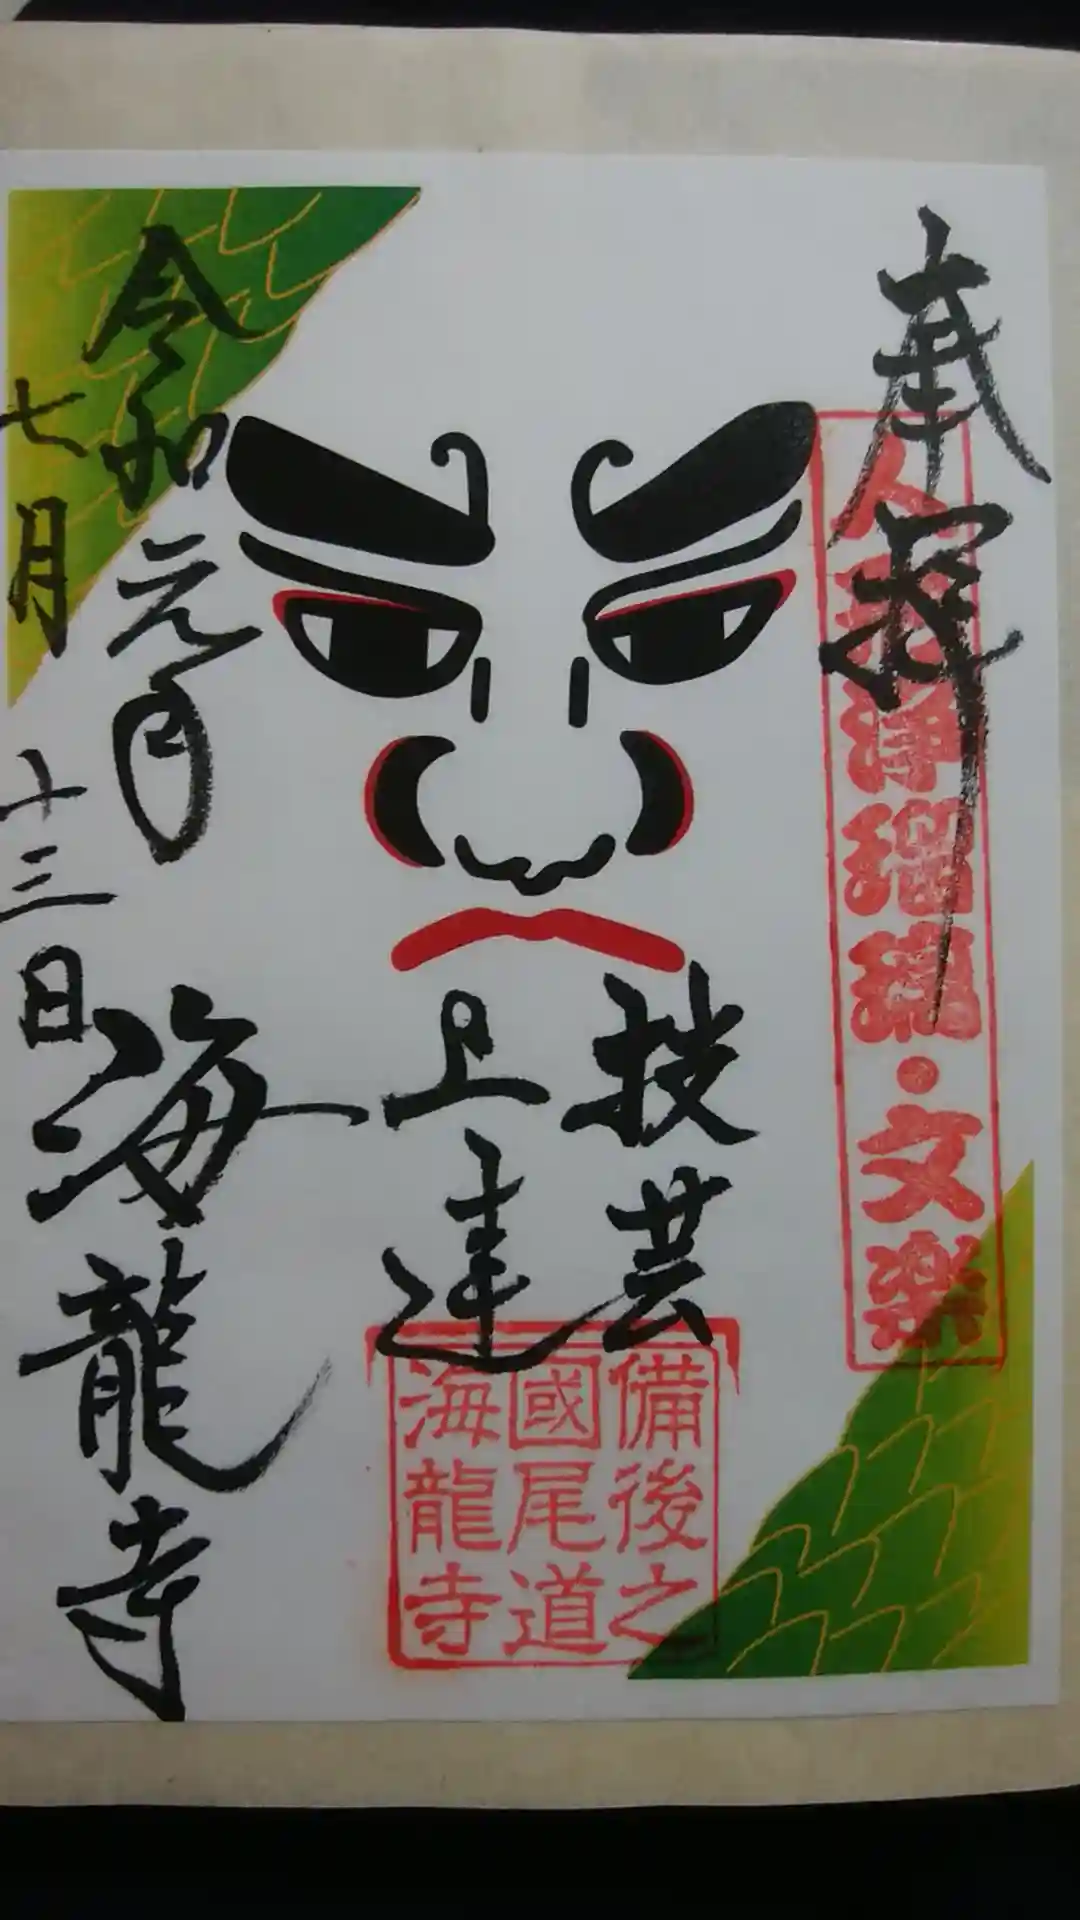 奉拝
人形浄瑠璃・文楽
技芸
上達
備後之
國尾道
海龍寺
令和元年
七月十三日
海龍寺